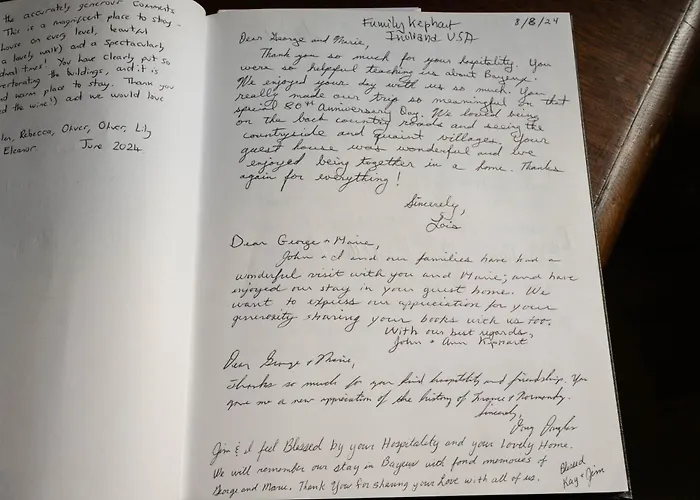 the accurately generous comments
This is a magnificent place to stay -
house on every level, beautiful
a lovely walk) and a spectacularly
dual tones! You have clearly put so
the buildings, and it is
warm place to stay. Thank you
nd the wine!) and we would love
Rebecca, Oliver, Oliver, Lily
Eleanor. June 2024
Family Kephart
USA
8/8/24
Dear George and Marie,
Thank you so much for your hospitality. You
were so helpful teaching us about Bayeux.
We enjoyed your day with us so much. You
really made our trip so meaningful on that
special 80th Anniversary Day. We loved being
on the back country roads and seeing the
countryside and quaint villages. Your
guest house was wonderful and we
enjoyed being together in a home. Thanks
again for everything!
Sincerely,
Lois
Dear George + Marie,
John + I and our families have had a
wonderful visit with you and Marie, and have
enjoyed our stay in your guest home. We
want to express our appreciation for your
generosity sharing your books with us too.
With our best regards,
John + Ann Kephart
Dear George + Marie,
Thanks so much for your kind hospitality and friendship. You
gave me a new appreciation of the history of France + Normandy.
Sincerely,
Jim & I feel Blessed by your Hospitality and your Lovely Home.
We will remember our stay in Bayeux with fond memories of
George and Marie. Thank You for sharing your Love with all of us.
Blessed
Kay + Jim